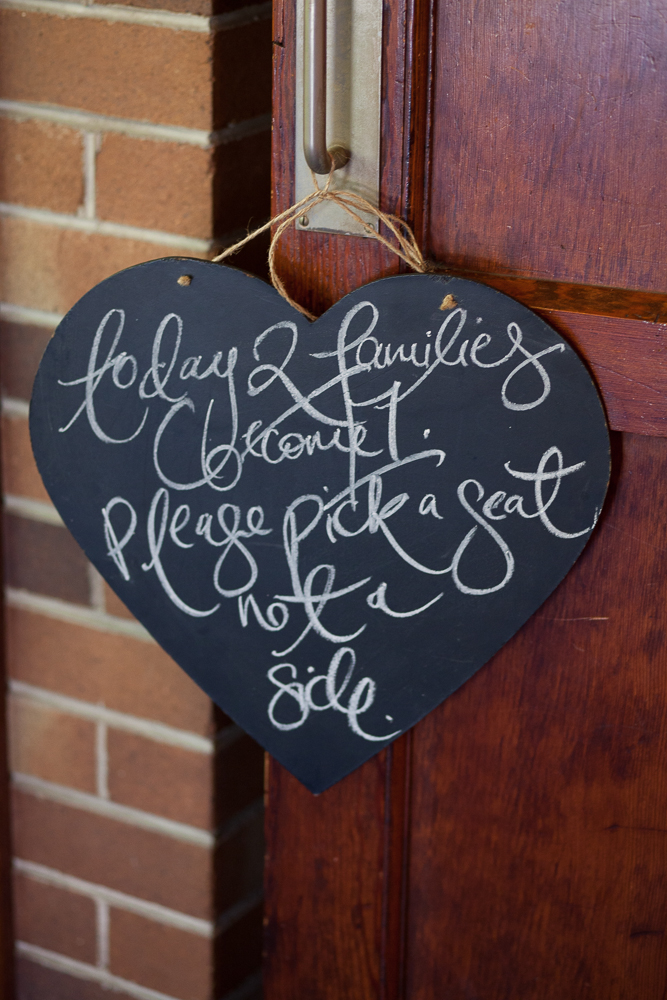 today 2 families
become 1.
Please pick a seat
not a
side.